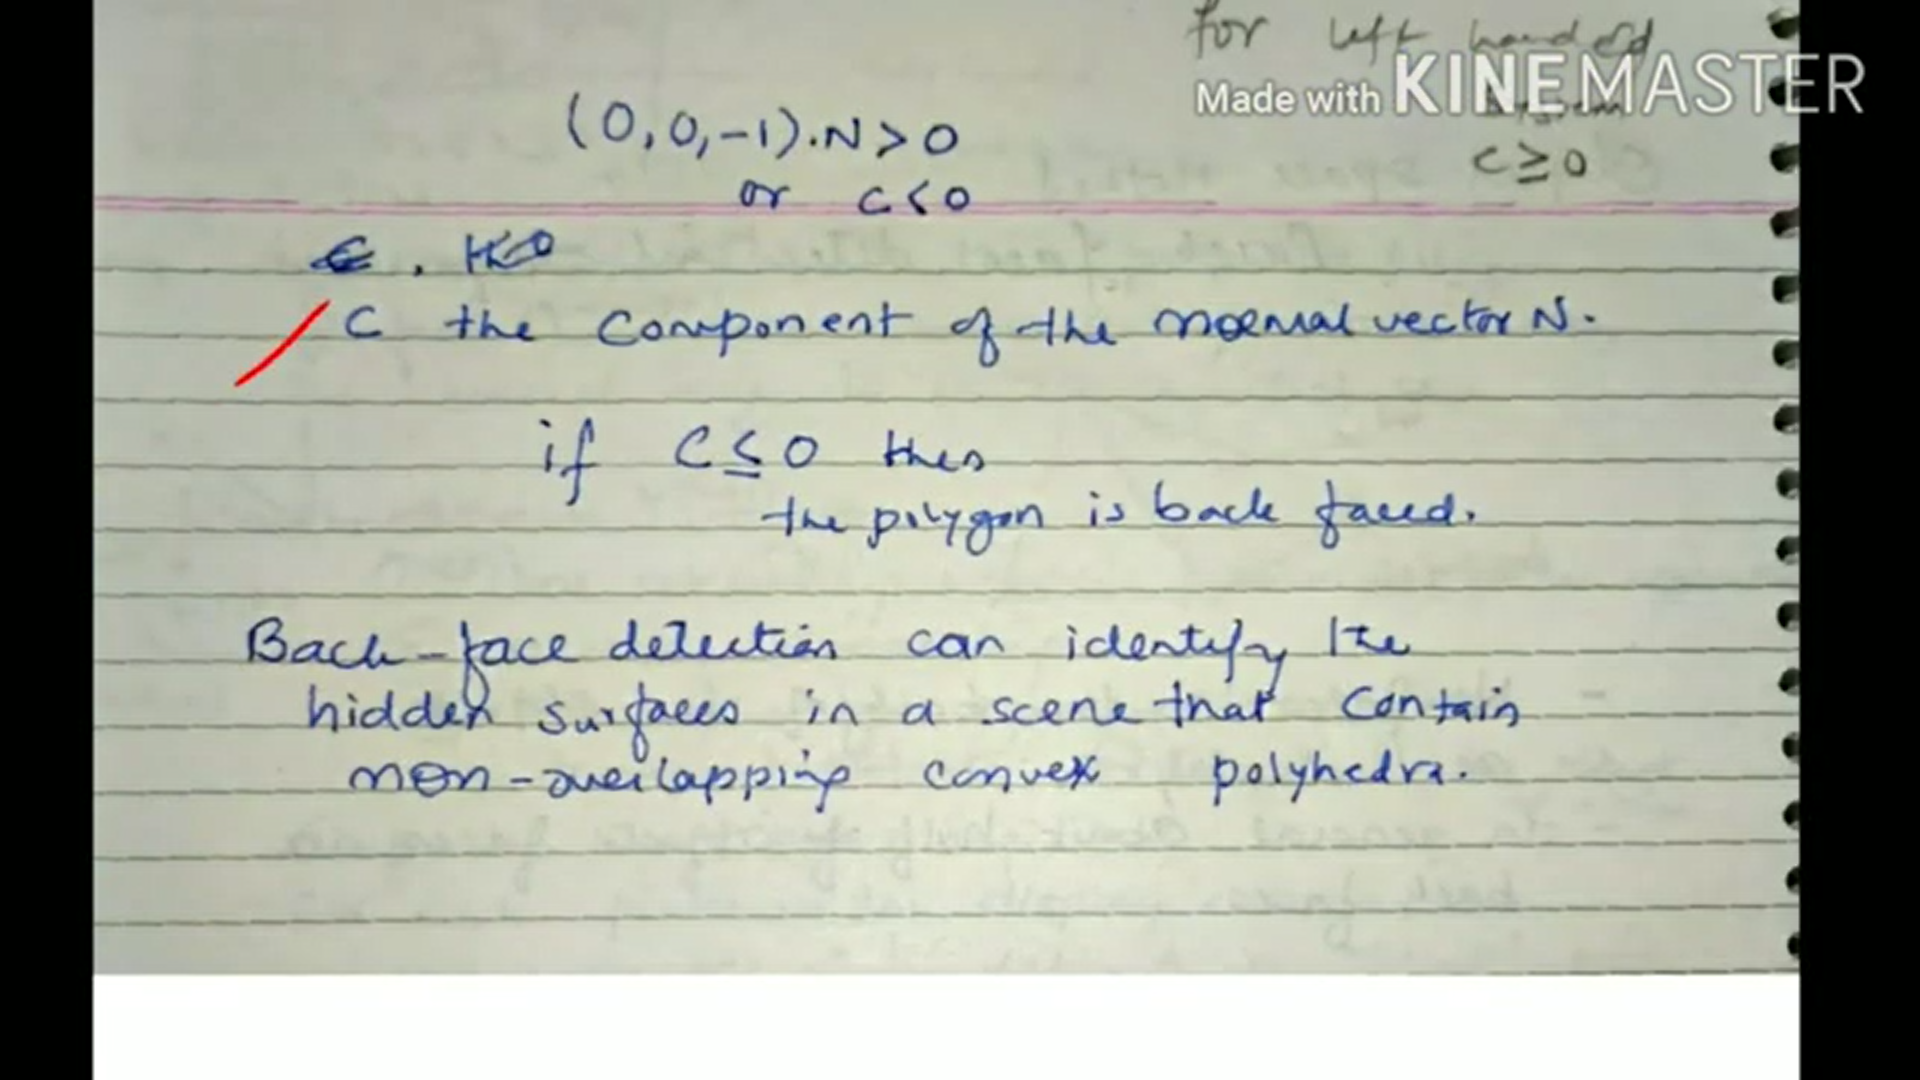 for left handed
Made with KINEMASTER
system
(0,0,-1).N>0
c≥0
or c<0
C the component of the normal vector N.
if C≤0 then
the polygon is back faced.
Back-face detection can identify the
hidden surfaces in a scene that contain
non-overlapping convex polyhedra.